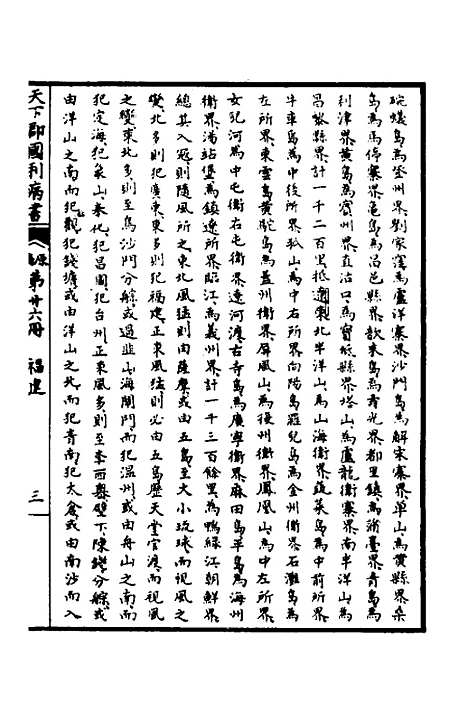 磯島為登州界劉家窪為盧洋寨界沙門島為解宋寨界單山為黃縣界桑
島為馬停寨界龜島為昌邑縣界歆末島為壽光界都里鎮為新臺界青島為
利津界黃島為賓州界直沽口為寶坻縣界塔山為盧龍衛寨界南半洋山為
昌黎縣界計一千二百里抵遼東北半洋山為山海衛界蔬菜島為中前所界
牛車島為中後所界孤山為中右所界向陽島羅兒島為金州衛界石灘島為
左所界東雲島黃駝島為蓋州衛界屏風山為復州衛界鳳凰山為中左所界
女兒河為中屯衛右屯衛界遼河渡古寺島為廣寧衛界麻田島平島為海州
衛界湯站堡為鎮遼所界臨江為義州界計一千三百餘里為鴨綠江朝鮮界
總其入寇則隨風所之東北風猛則由薩摩或由五島至大小琉球而視風之
變北多則犯廣東東多則犯福建正東風猛則必由五島歷天堂官渡而視風
之變東北多則至烏沙門分䑸或過韭山海閘門而犯溫州或由舟山之南而
犯定海犯象山奉化犯昌國犯台州正東風多則至李西嶴壁下陳錢分䑸或
由洋山之南而犯觀犯錢塘或由洋山之北而犯青南犯太倉或由南沙而入
天下郡國利病書 原第廿六冊 福建 三